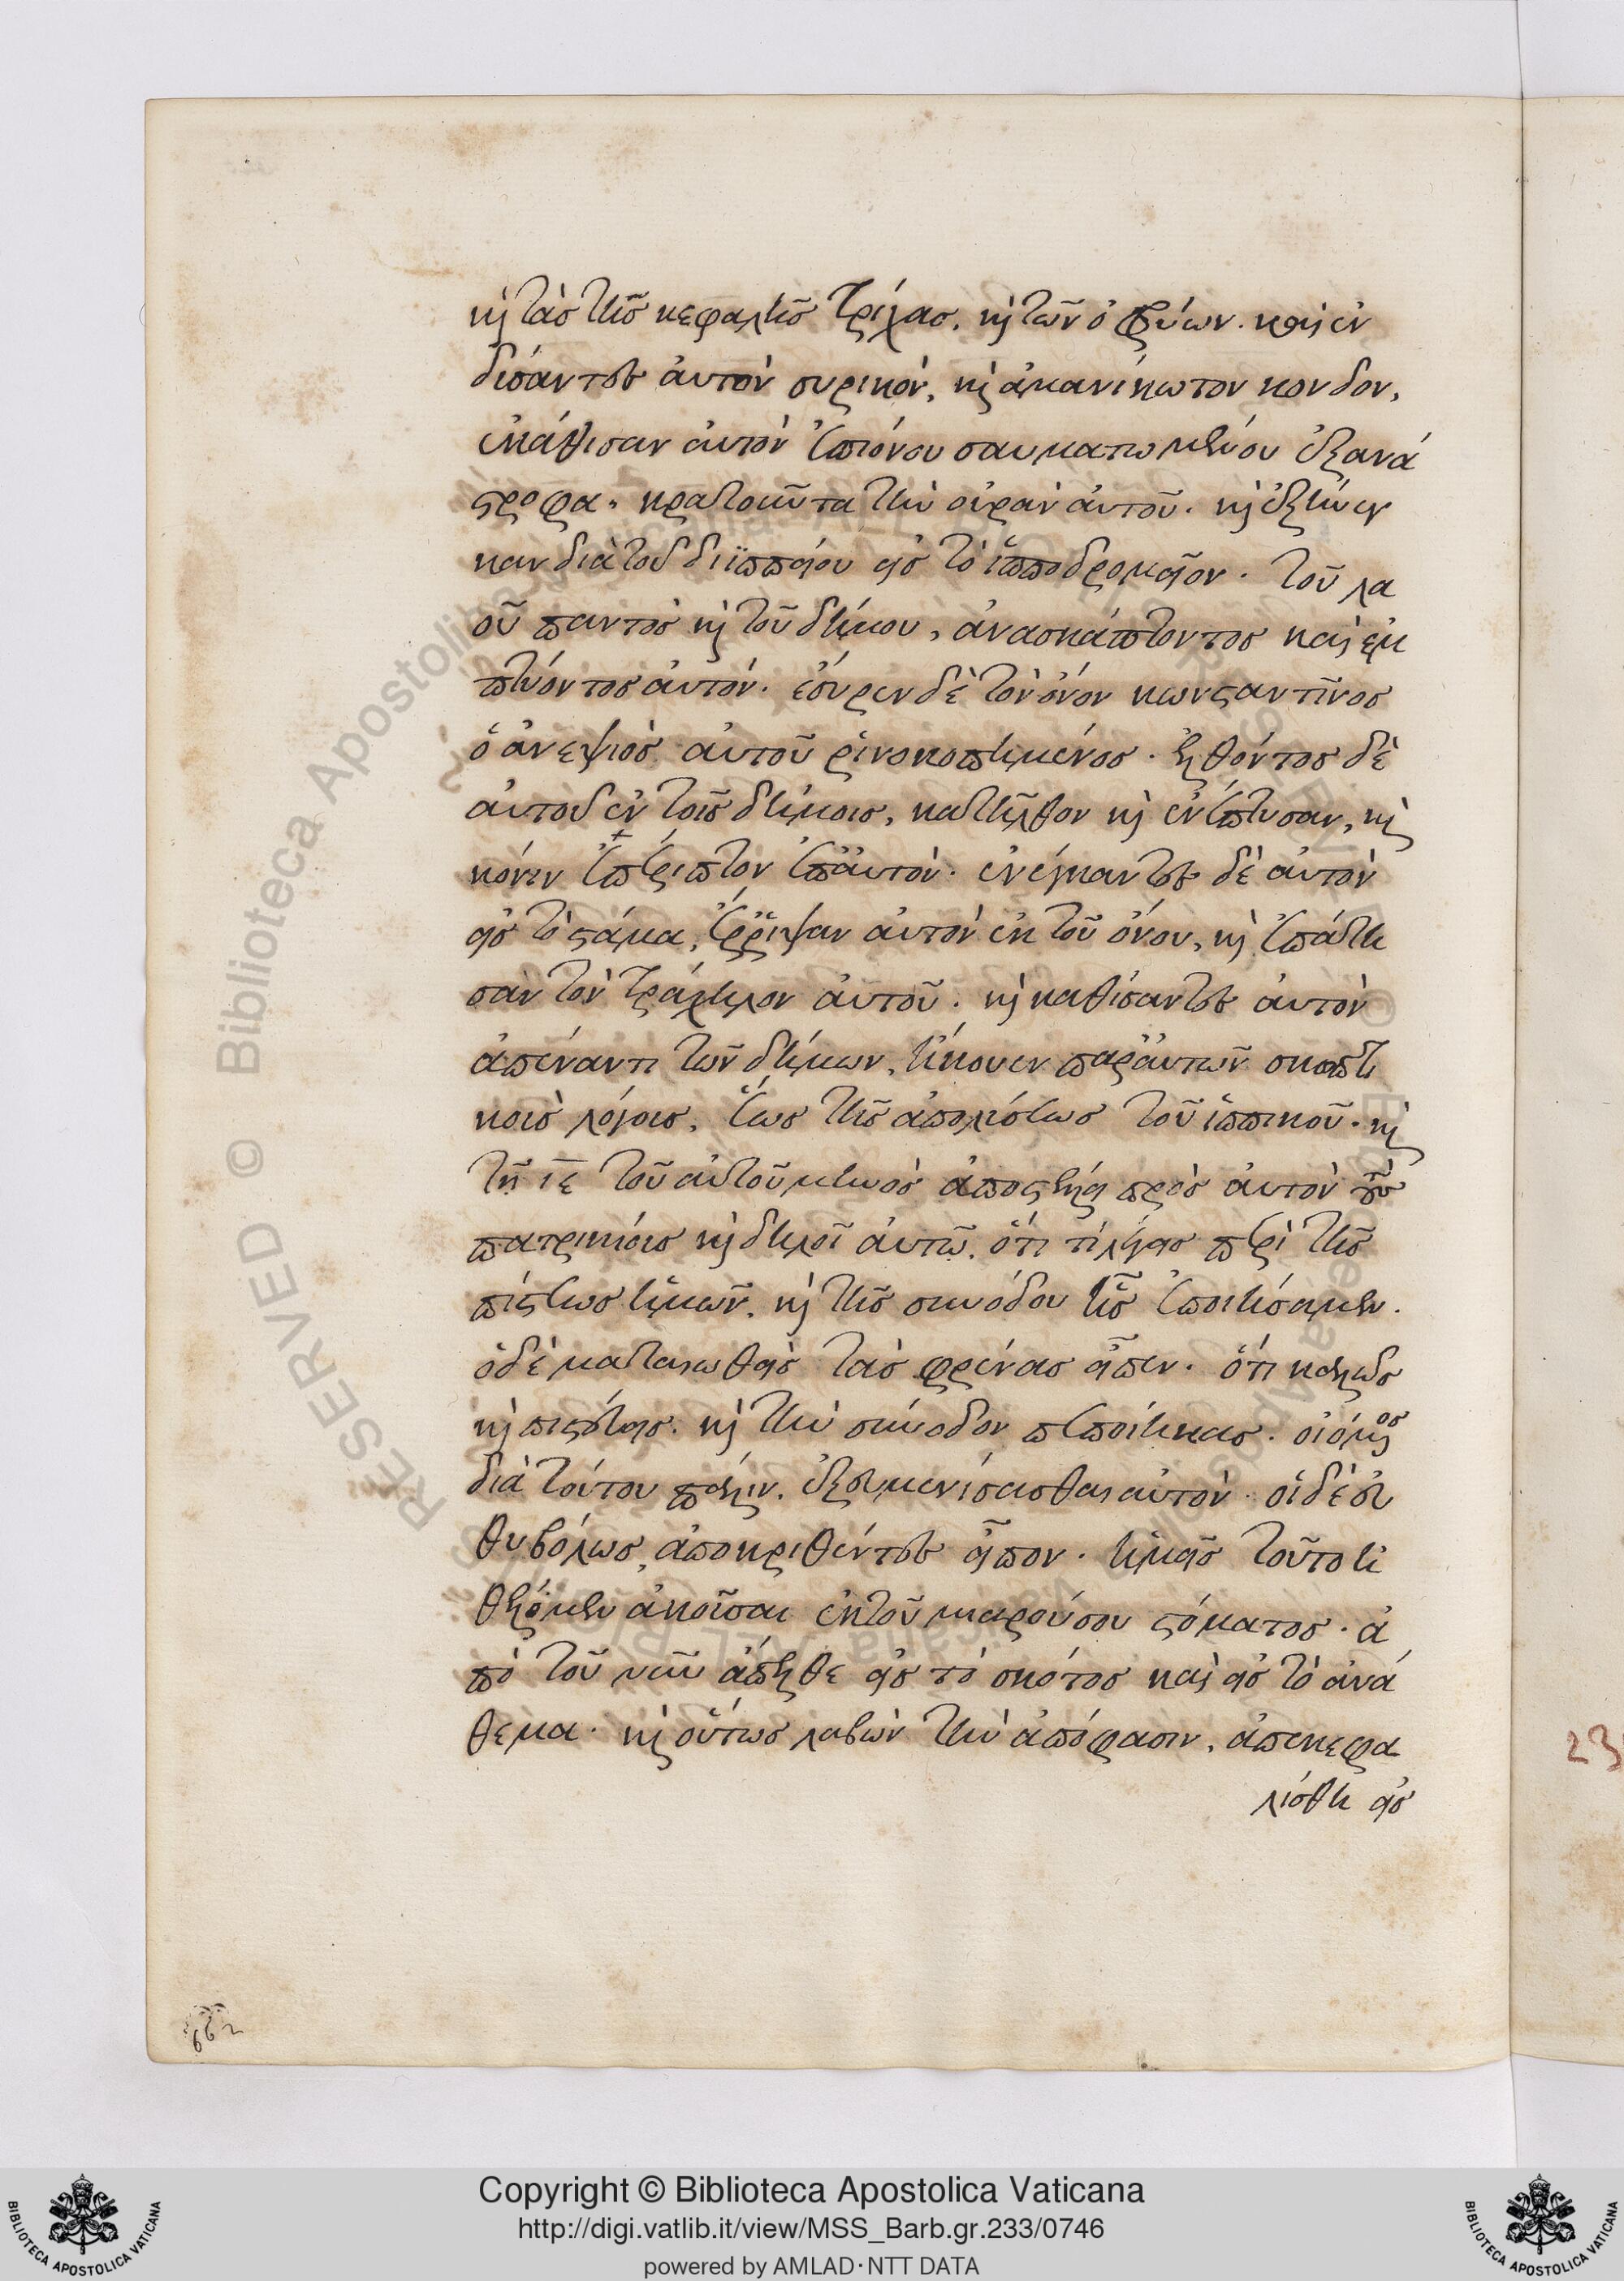 καὶ τὰς τῆς κεφαλῆς τρίχας, καὶ τῶν ὀφρύων. καὶ ἐν
δύσαντες ἀυτὸν συρικὸν, καὶ ἀμανίκωτον κονδον,
ἐκάθισαν ἀυτὸν ἐπιόνου σαυματωμένου ἐξανά
στροφα, κρατοῦντα τὴν οὐρὰν ἀυτοῦ. καὶ ἐξήνεγ
καν διὰ τοῦ διϊππείου εἰς τὸ ἱπποδρομεῖον. τοῦ λα
οῦ παντὸς καὶ τοῦ δήμου, ἀνασκάπτοντος καὶ ἐμ
πτύοντος ἀυτόν. ἔσυρεν δὲ τὸν ὄνον κωνσταντῖνος
ὁ ἀνεψιὸς ἀυτοῦ ῥινοκοπημένος. ἐλθόντος δὲ
ἀυτοῦ ἐν τοῖς δήμοις, κατῆλθον καὶ ἐνέπτυσαν, καὶ
κόνιν ἐπέριπτον ἐπ' ἀυτὸν. ἐνέγκαντες δὲ ἀυτὸν
εἰς τὸ στάμα, ἔῤῥιψαν ἀυτὸν ἐκ τοῦ ὄνου, καὶ ἐπάτη
σαν τὸν τράχηλον ἀυτοῦ. καὶ καθίσαντες ἀυτὸν
ἀπέναντι τῶν δήμων, ἤκουεν παρ' ἀυτῶν σκωπτι
κοις λόγοις, ἕως τῆς ἀπολύσεως τοῦ ἱππικοῦ. καὶ
τῇ ιε τοῦ αὐτοῦ μηνὸς ἀποστέλλει πρὸς ἀυτὸν τοὺς
πατρικίοις καὶ δηλοῖ ἀυτῷ. ὅτι τί λέγεις περὶ τῆς
πίστεως ἡμῶν. καὶ τῆς συνόδου ἧς ἐποιήσαμεν.
ὁ δὲ ματαιωθεὶς τὰς φρένας εἶπεν. ὅτι καλῶς
καὶ πιστεύεις. καὶ τὴν σύνοδον πεποίηκας. οἰόμενος
διὰ τούτου πάλιν. ἐξευμενίσασθαι αὐτὸν. οἱ δὲ εὐ
θυβόλως ἀποκριθέντες εἶπον. ἡμεῖς τοῦτο ἠ
θέλομεν ἀκοῦσαι ἐκ τοῦ μιαροῦ σου στόματος. ἀ
πὸ τοῦ νῦν ἄπελθε εἰς τὸ σκότος καὶ εἰς τὸ ἀνά
θεμα. καὶ οὕτως λαβὼν τὴν ἀπόφασιν, ἀπεκεφα
λίσθη εἰς
RESERVED © Biblioteca Apostolica Vaticana
23
662
Copyright © Biblioteca Apostolica Vaticana
http://digi.vatlib.it/view/MSS_Barb.gr.233/0746
powered by AMLAD·NTT DATA
BIBLIOTECA APOSTOLICA VATICANA
BIBLIOTECA APOSTOLICA VATICANA